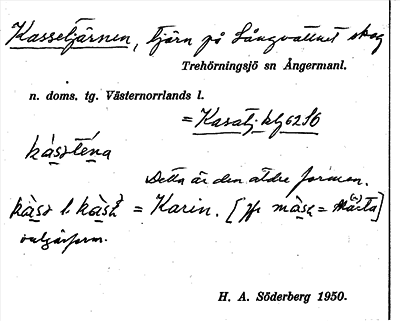 Kassetjärnen, tjärn på Långvattnet skog
Trehörningsjö sn Ångermanl.
n. doms. tg. Västernorrlands l.
= Kasatj. blg 62 S6
kàstéṇa
Detta är den äldre formen.
kàsɩ l. kàsɩ̀ = Karin. [jfr màsɩ = Märta]
vulgärform.
H. A. Söderberg 1950.